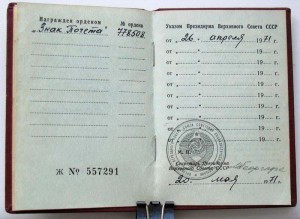 Награжден орденом
№ ордена
"Знак Почета"
778508
Ж № 557291
Указом Президиума Верховного Совета СССР
от "26" апреля 1971 г.
от " " 19 г.
от " " 19 г.
от " " 19 г.
от " " 19 г.
от " " 19 г.
от " " 19 г.
от " " 19 г.
М. П.
Секретарь Президиума
Верховного Совета СССР
"20" мая 1971 г.